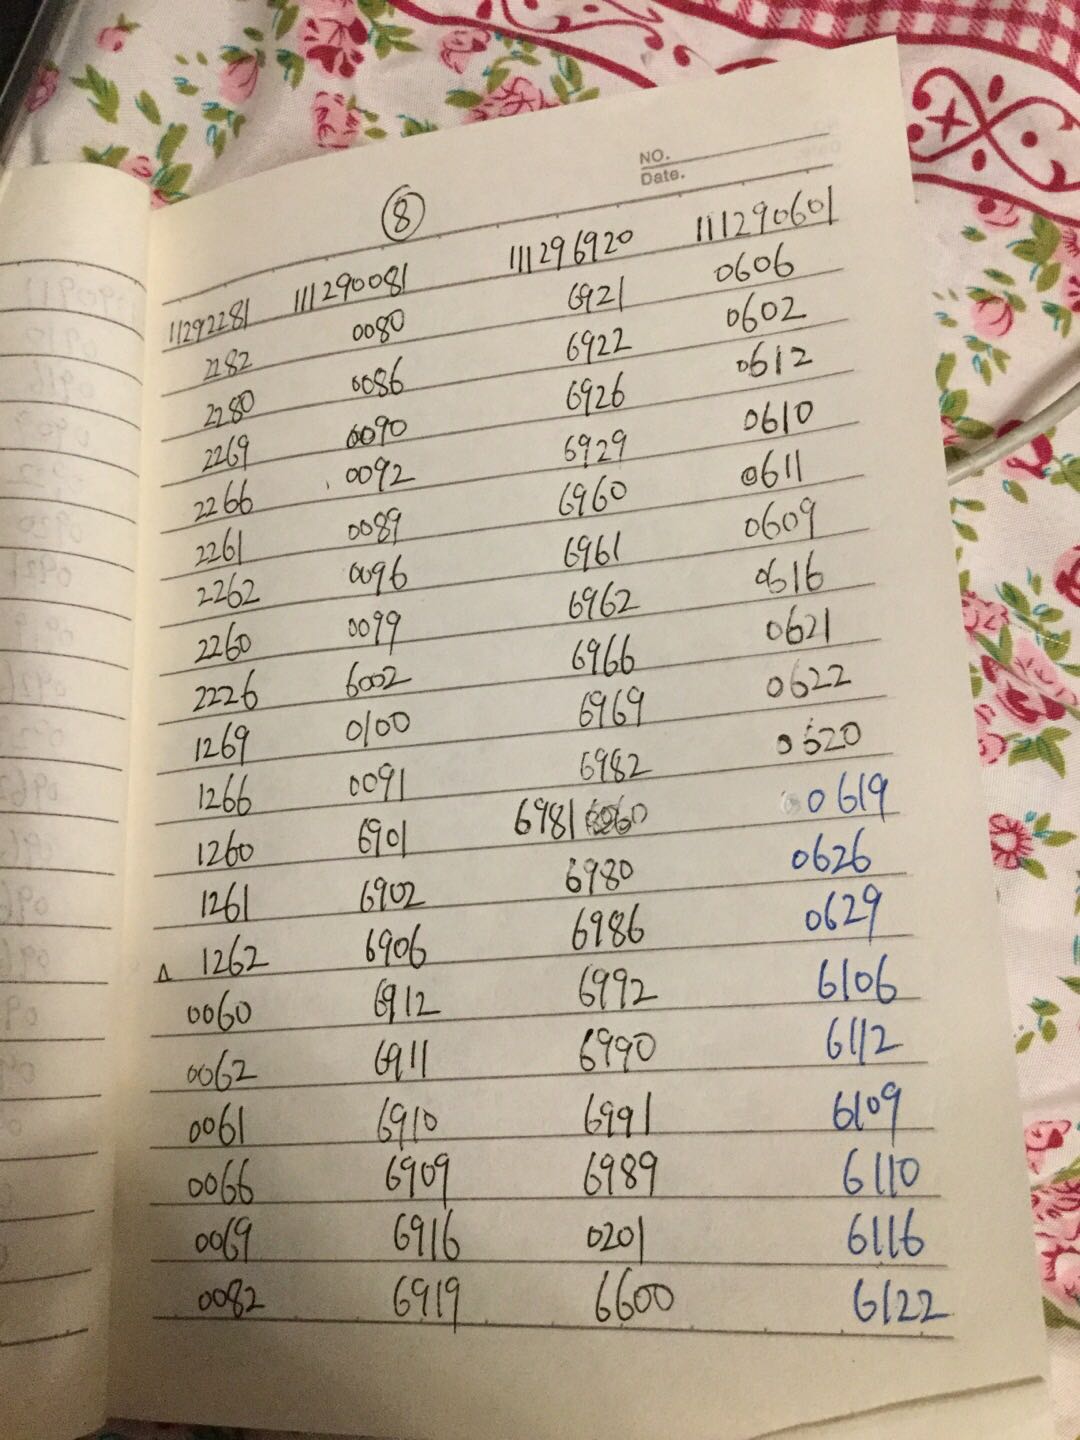 NO.
Date.
⑧
11292281 111290081 111296920 111290601
2282 0080 6921 0606
2280 0086 6922 0602
2269 0090 6926 0612
2266 0092 6929 0610
2261 0089 6960 0611
2262 0096 6961 0609
2260 0099 6962 0616
2226 6002 6966 0621
1269 0100 6969 0622
1266 0091 6982 0620
1260 6901 6981 0619
1261 6902 6980 0626
Δ 1262 6906 6986 0629
0060 6912 6992 6106
0062 6911 6990 6112
0061 6910 6991 6109
0066 6909 6989 6110
0069 6916 0201 6116
0082 6919 6600 6122